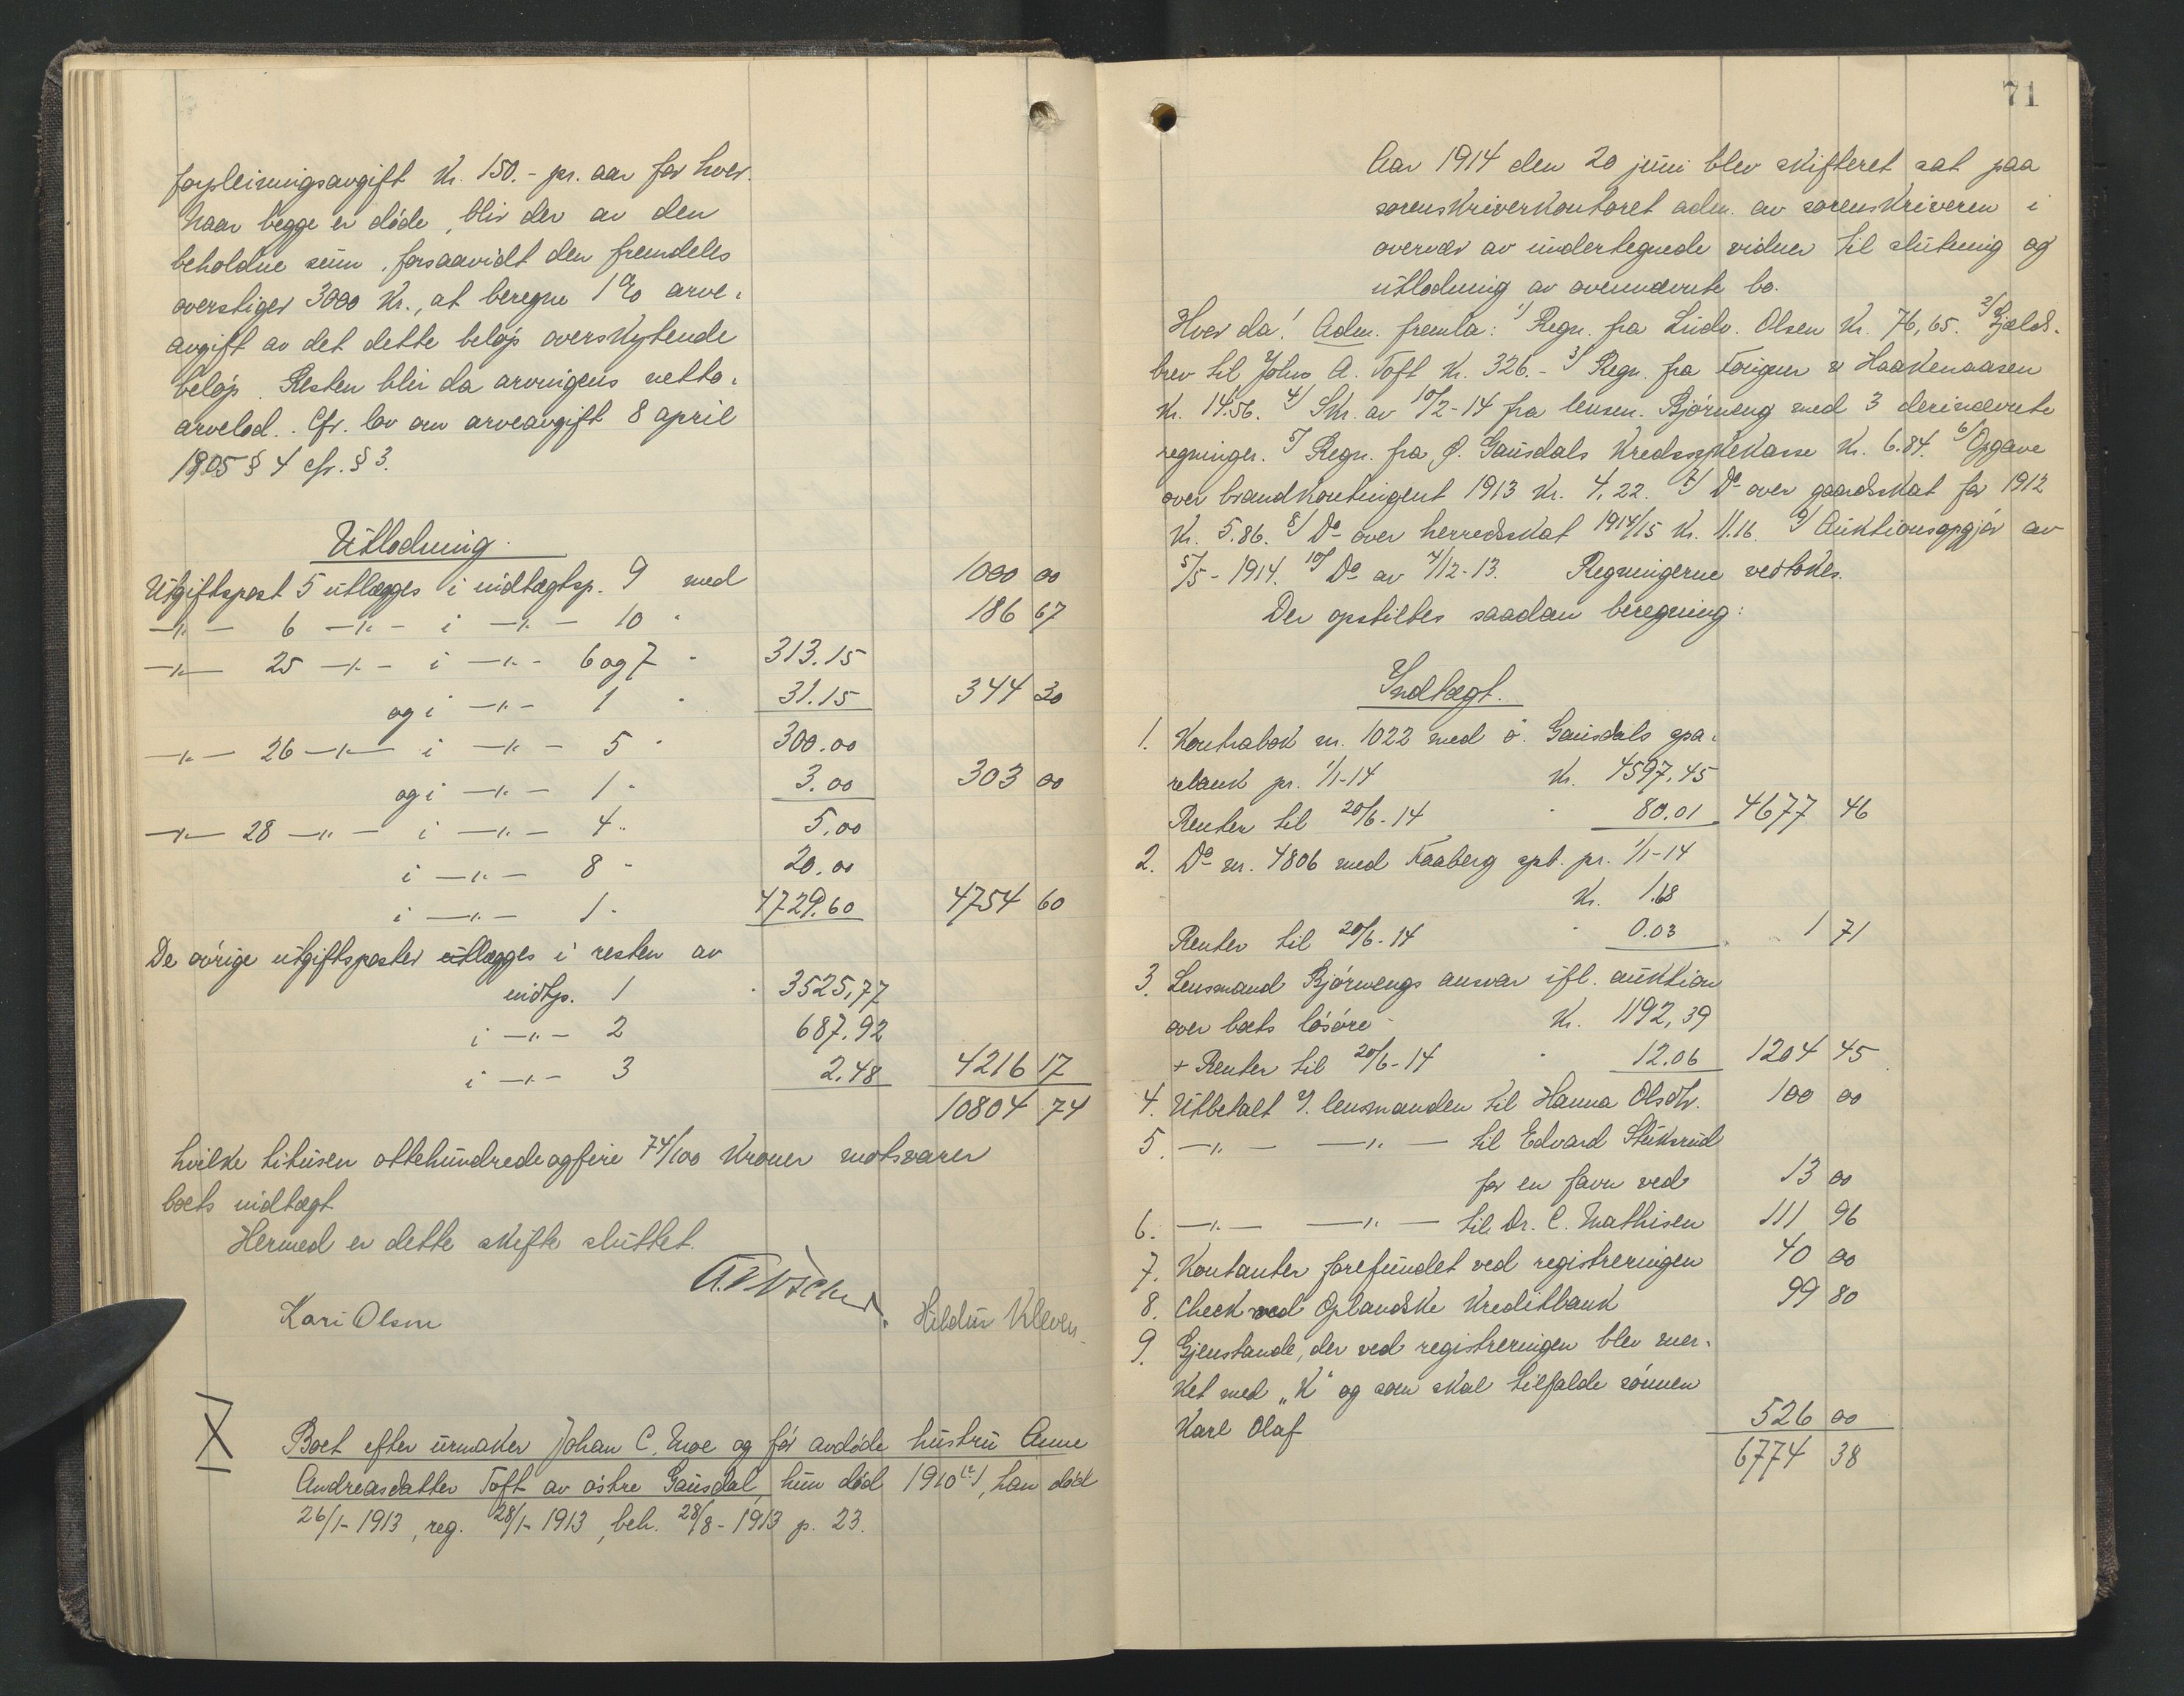 forpleiningsavgift Kr. 150.- pr. aar for hver.
Naar begge er døde, blir der av den
beholdne sum, forsaavidt den fremdeles
overstiger 3000 Kr., at beregne 1% arve-
avgift av det dette beløp overskytende
beløp. Resten blir da arvingens netto-
arvelod. Cfr. lov om arveavgift 8 april
1905 § 4 cfr. § 3.
Utlodning.
Utgiftspost 5 utlægges i indtægtsp. 9 med 1000 00
-"- 6 -"- i -"- 10 " 186 67
-"- 25 -"- i -"- 6 og 7 " 313.15
og i -"- 1 " 31.15 344 30
-"- 26 -"- i -"- 5 " 300.00
og i -"- 1 " 3.00 303 00
-"- 28 -"- i -"- 4 " 5.00
i -"- 8 " 20.00
i -"- 1 " 4729.60 4754 60
De øvrige utgiftsposter utlægges i resten av
indtp. 1 " 3525,77
i -"- 2 687.92
i -"- 3 2.48 4216 17
10804 74
hvilke titusen ottehundredeogfire 74/100 Kroner motsvarer
boets indtægt.
Hermed er dette skifte sluttet.
Kari Olsen Hildur Kleven
X
Boet efter urmaker Johan C. Moe og før avdøde hustru Anne
Andreasdatter Toft av østre Gausdal, hun død 1910(?), han død
26/1-1913, reg. 28/1-1913, beh. 28/8-1913 p. 23.
71
Aar 1914 den 20 juni blev skifteret sat paa
sorenskriverkontoret adm. av sorenskriveren i
overvær av undertegnede vidner til slutning og
utlodning av ovennævnte bo.
Hvor da! Adm. fremla: 1/ Regn. fra Ludv. Olsen Kr. 76,65. 2/ Gjælds-
brev til Johs A. Toft Kr. 326.- 3/ Regn. fra Forigner v Haakenaasen
Kr. 14.56. 4/ Skr. av 10/2-14 fra lensm. Bjørneng med 3 derinævnte
regninger. 5/ Regn. fra Ø. Gausdals Kredssykekasse Kr. 6.84. 6/ Opgave
over brandkontingent 1913 Kr. 4,22. 7/ Do over gaardskat for 1912
Kr. 5.86. 8/ Do over herredsskat 1914/15 Kr. 11.16. 9/ Auktionsopgjør av
5/5-1914. 10/ Do av 4/12-13. Regningerne vedtokes.
Der opstiltes saadan beregning:
Indtægt.
1. Kontrabok nr. 1022 med ø. Gausdals spa-
rebank pr. 1/1-14 Kr. 4597.45
Renter til 20/6-14 " 80.01 4677 46
2. Do nr. 4806 med Faaberg spb. pr. 1/1-14
Kr. 1.68
Renter til 20/6-14 " 0.03 1 71
3. Lensmand Bjørnengs ansvar ifl. auktion
over boets løsøre Kr. 1192,39
+ Renter til 20/6-14 " 12.06 1204 45
4. Utbetalt v. lensmanden til Hanna Olsdtr. 100 00
5. -"- -"- til Edvard Stuksrud
for en favn ved 13 00
6. -"- -"- til Dr. C. Mathisen 111 96
7. Kontanter forefundet ved registreringen 40 00
8. Check ved Oplandske Kreditbank 99 80
9. Gjenstande, der ved registreringen blev mer-
ket med „K" og som skal tilfalde sønnen
Karl Olaf 526 00
6774 38